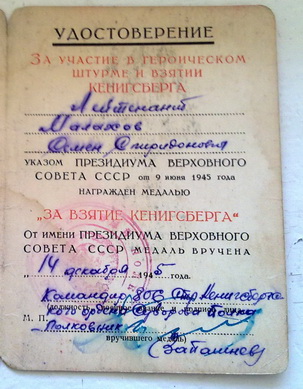 УДОСТОВЕРЕНИЕ
ЗА УЧАСТИЕ В ГЕРОИЧЕСКОМ
ШТУРМЕ И ВЗЯТИИ
КЕНИГСБЕРГА
Лейтенант
Малахов
Семен Спиридонович
УКАЗОМ ПРЕЗИДИУМА ВЕРХОВНОГО
СОВЕТА СССР от 9 июня 1945 года
НАГРАЖДЕН МЕДАЛЬЮ
„ЗА ВЗЯТИЕ КЕНИГСБЕРГА“
От имени ПРЕЗИДИУМА ВЕРХОВНОГО
СОВЕТА СССР МЕДАЛЬ ВРУЧЕНА
„14 декабря 1945 года.
Командир 806 Стр. Кенигсбергск
ордена Суворова Полка
(должность, звание и подпись лица
М. П. Полковник
вручившего медаль)